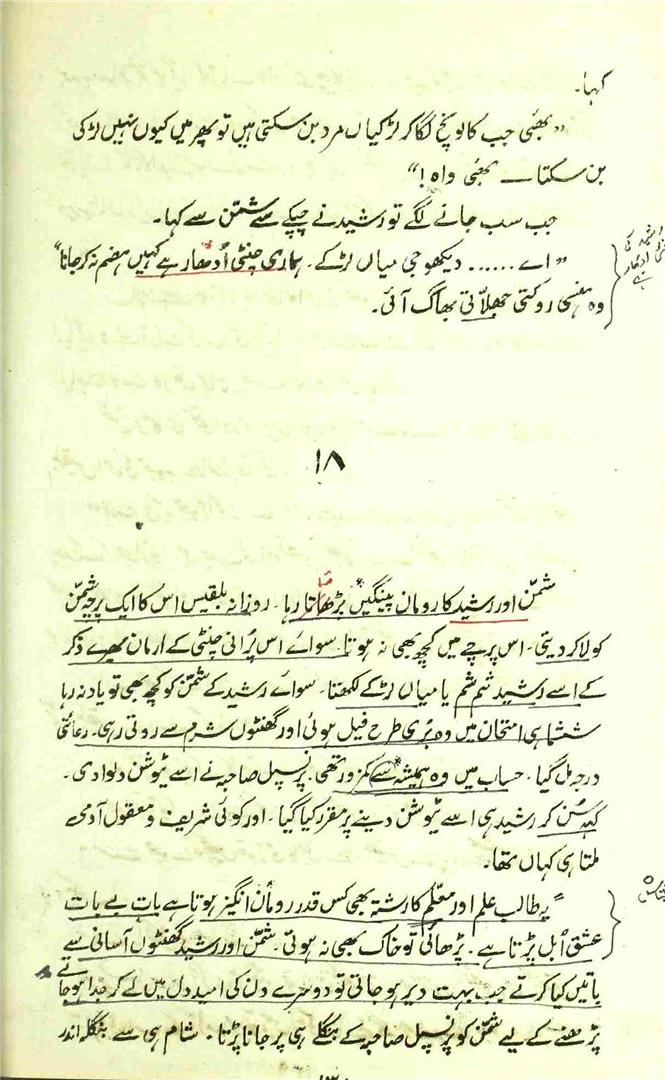 کہا۔
”بھئی جب کالونچ لگا کر لڑکیاں مرد بن سکتی ہیں تو پھر میں کیوں نہیں لڑکی
بن سکتا — بھئی واہ!“
جب سب جانے لگے تو رشید نے چپکے سے شمّن سے کہا۔
”اے ...... دیکھو جی میاں لڑکے۔ ہماری چنٹی اُدھار ہے کہیں ہضم نہ کر جانا“
وہ ہنسی روکتی جھلّاتی بھاگ آئی۔
۱۸
شمّن اور رشید کا رومان پینگیں بڑھاتا رہا۔ روزانہ بلقیس اس کا ایک پرچہ شمّن
کو لا کر دیتی۔ اس پرچے میں کچھ بھی نہ ہوتا۔ سوائے اس پُرانی چنٹی کے ارمان بھرے ذکر
کے اسے رشید شم شم یا میاں لڑکے لکھتا۔ سوائے رشید کے شمّن کو کچھ بھی تو یاد نہ رہا
ششماہی امتحان میں وہ بُری طرح فیل ہوئی اور گھنٹوں شرم سے روتی رہی۔ رعائتی
درجہ مل گیا۔ حساب میں وہ ہمیشہ سے کمزور تھی۔ پرنسپل صاحبہ نے اسے ٹیوشن دلوا دی۔
کہہ سُن کر رشید ہی اسے ٹیوشن دینے پر مقرر کیا گیا۔ اور کوئی شریف و معقول آدمی
ملتا ہی کہاں تھا۔
یہ طالب علم اور معلّم کا رشتہ بھی کس قدر رومان انگیز ہوتا ہے بات بے بات
عشق اُبل پڑتا ہے۔ پڑھائی تو خاک بھی نہ ہوتی۔ شمّن اور رشید گھنٹوں آسانی سے
باتیں کیا کرتے جب بہت دیر ہو جاتی تو دوسرے دن کی امید دل میں لے کر جدا ہو جاتے
پڑھنے کے لیے شمّن کو پرنسپل صاحبہ کے بنگلے ہی پر جانا پڑتا۔ شام ہی سے بنگلہ اندر